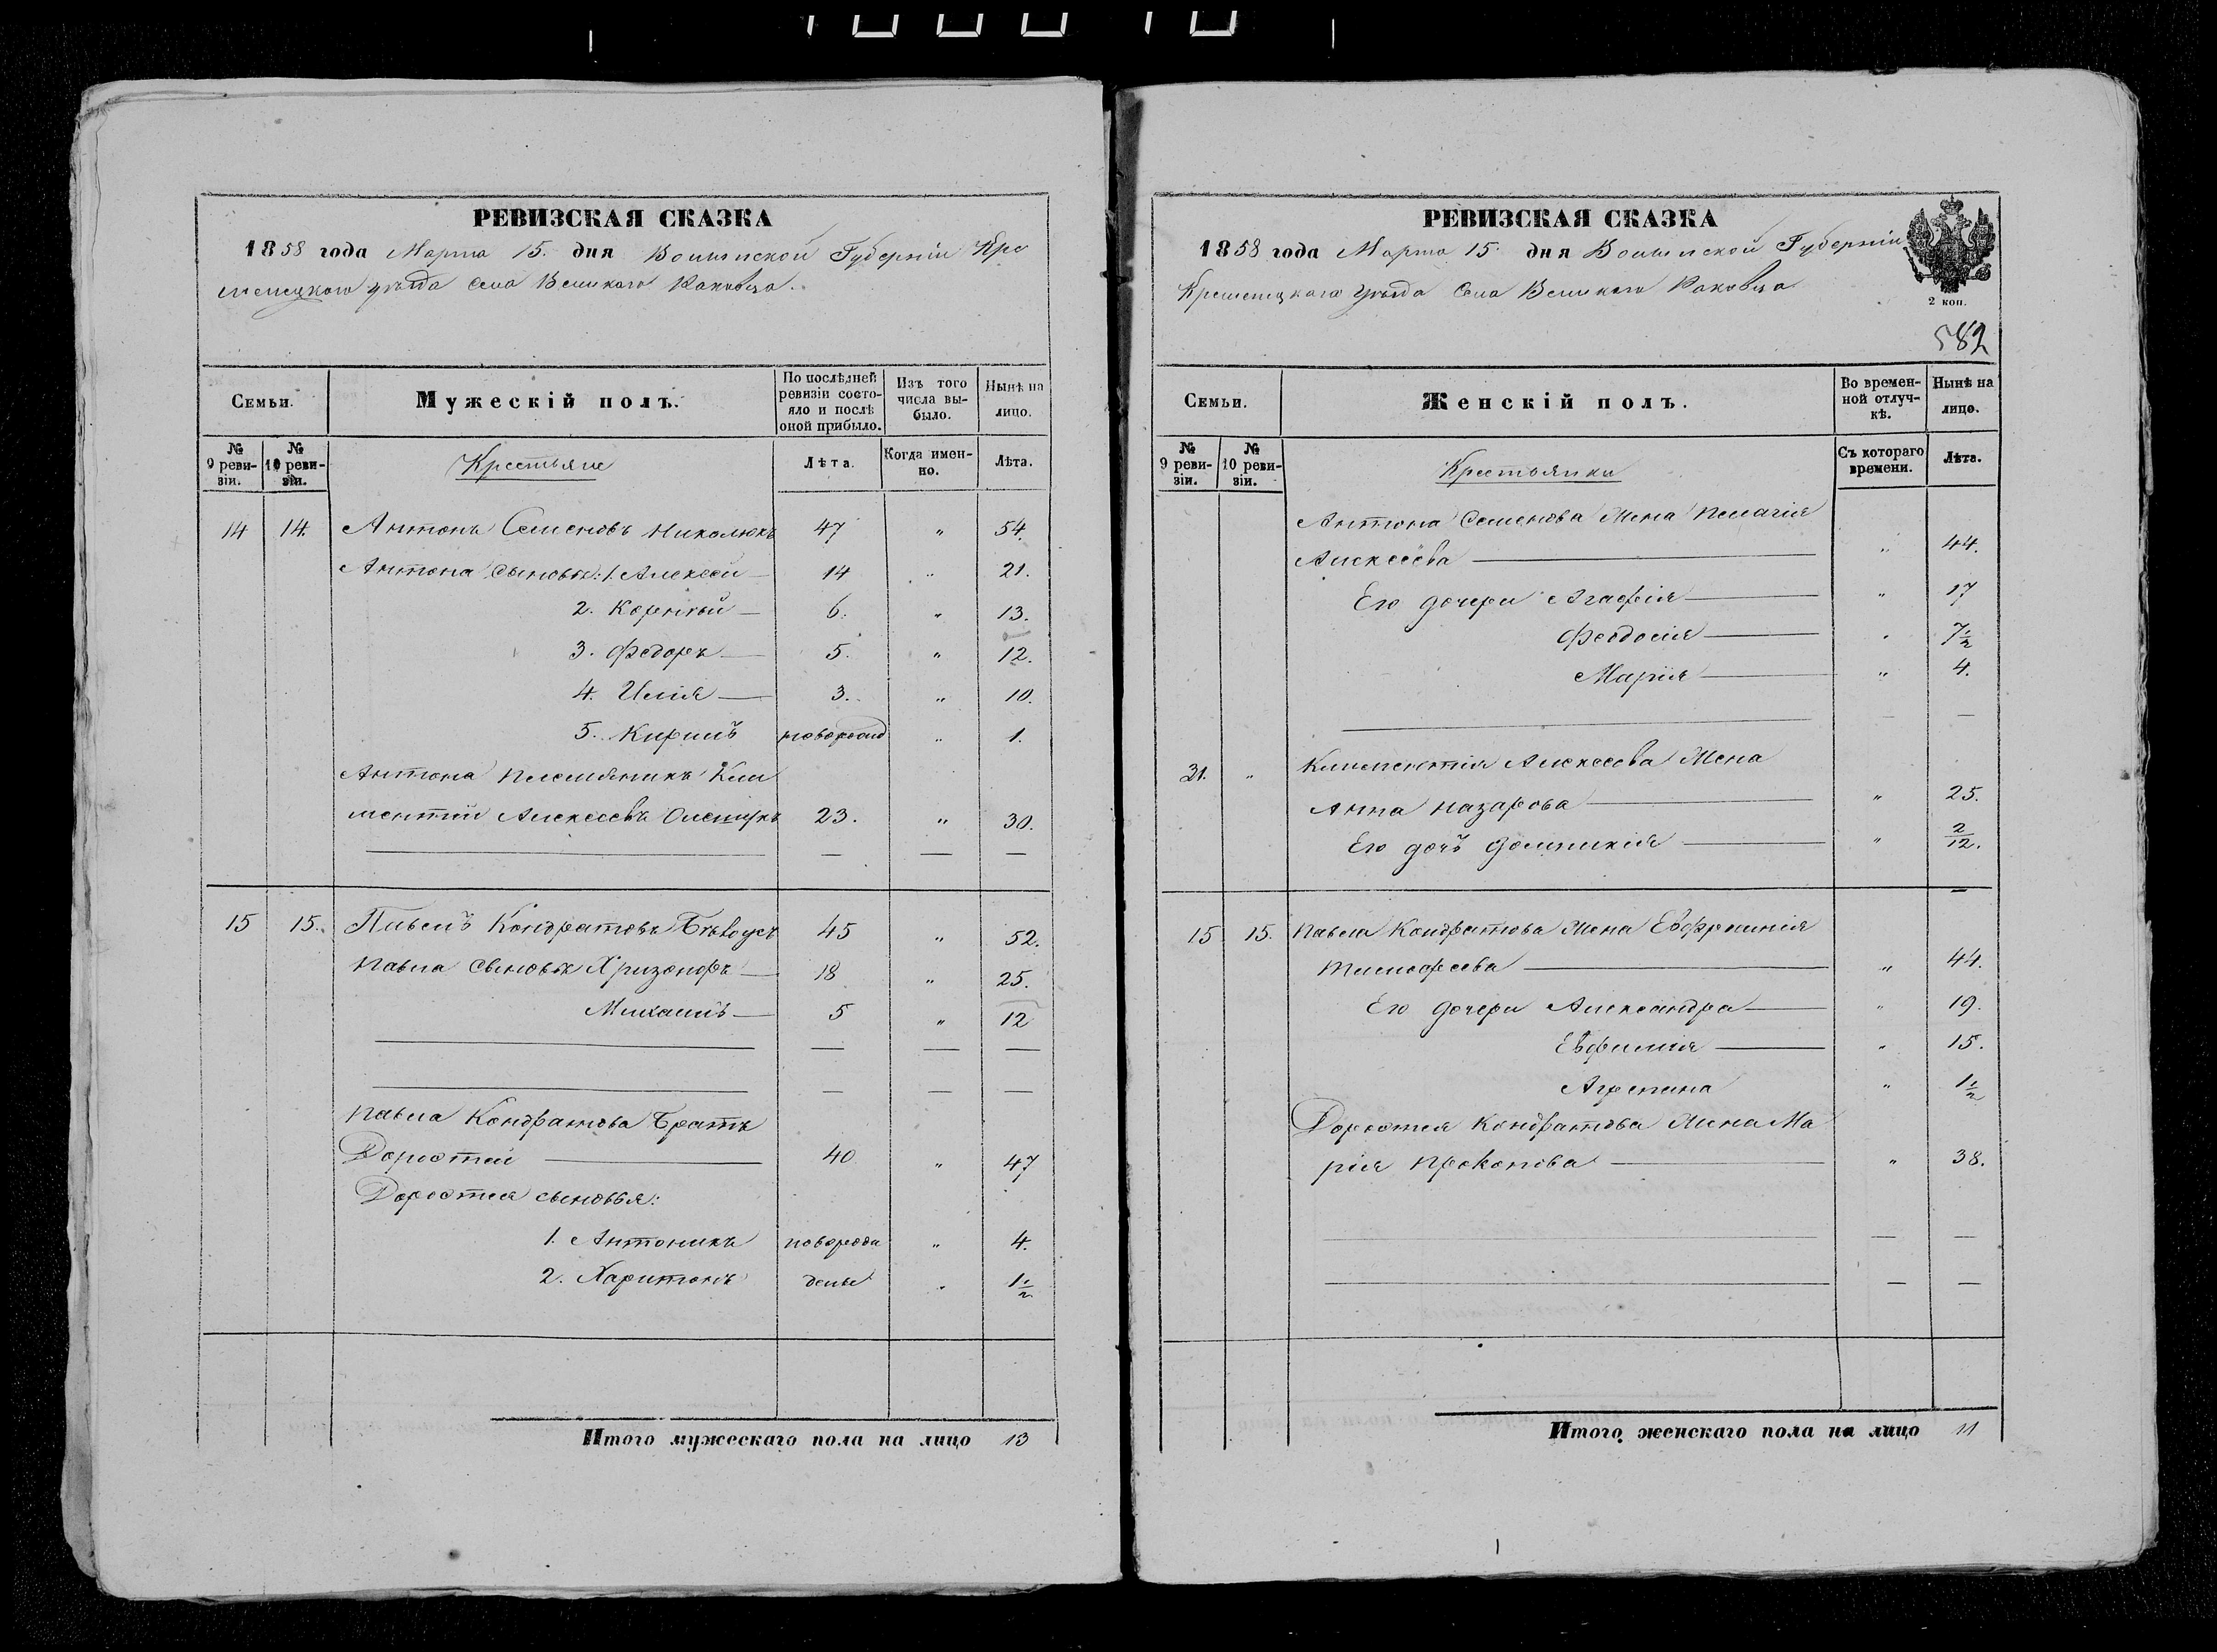 РЕВИЗСКАЯ СКАЗКА
1858 года Марта 15. дня Волынской Губерніи Кре
менецкаго уѣзда села Великаго Раковца.
Семьи.
Мужескій полъ.
По послѣдней ревизіи состояло и послѣ оной прибыло.
Изъ того числа выбыло.
Нынѣ на лицо.
№ 9 ревизіи.
№ 10 ревизіи.
Крестьяне
Лѣта.
Когда именно.
Лѣта.
14 14. Антонъ Семеновъ Николюкъ 47 " 54.
Антона сыновья: 1. Алексей — 14 " 21.
2. Корнѣй — 6. " 13.
3. Федоръ — 5. " 12.
4. Илія — 3. " 10.
5. Кирилъ новорожд " 1.
Антона племяникъ Кли
ментій Алексеевъ 23. " 30.
— — —
15 15. Павелъ Кондратовъ Бѣлоусъ 45 " 52.
Павла сыновья Хризонфъ — 18 " 25.
Михаилъ — 5 " 12
— — —
— — —
Павла Кондратова Братъ
Доростей — 40 " 47
Доростея сыновья:
1. Антоникъ новорожд " 4.
2. Харитонъ деные " 1½
Итого мужескаго пола на лицо 13
РЕВИЗСКАЯ СКАЗКА
1858 года Марта 15 дня Волынской Губерніи
Кременецкаго Уѣзда Села Великаго Раковца
2 коп.
582
Семьи.
Женскій полъ.
Во временной отлучкѣ.
Нынѣ на лицо.
№ 9 ревизіи.
№ 10 ревизіи.
Крестьянки
Съ котораго времени.
Лѣта.
Антона Семенова Жена Пелагія
Алексеева — " 44.
Его дочери Агафія — " 17
Феодосія — " 7½
Марія — " 4.
— — —
31. " Климентія Алексеева Жена
Анна Назарова — " 25.
Его дочъ Доминикія — " 2/12.
—
15 15. Павла Кондратова Жена Евфрпинія
Тимофеева — " 44.
Его дочери Александра — " 19.
Евфимія — " 15.
Агрепина " 1½
Доростея Кондратова Жена Ма
рія Прокопова — " 38.
— — —
— — —
Итого женскаго пола на лицо 11